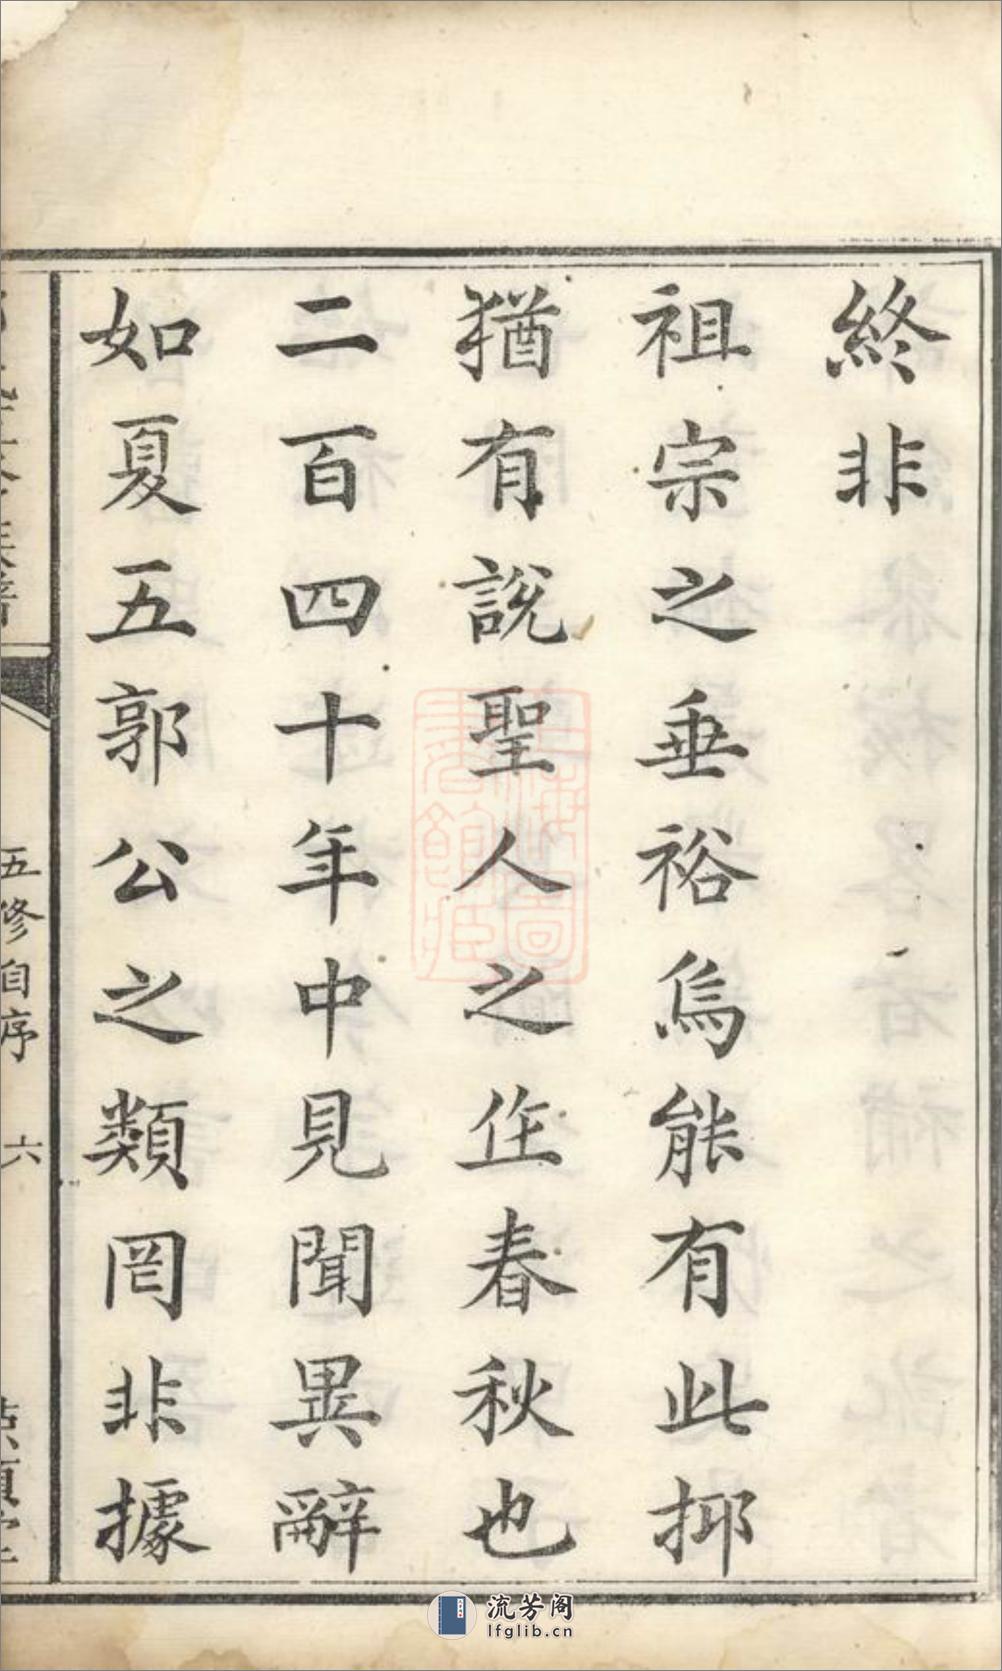 終非
祖宗之垂裕烏能有此抑
猶有說聖人之作春秋也
二百四十年中見聞異辭
如夏五郭公之類罔非據
五修自序 六
流芳阁
lfglib.cn